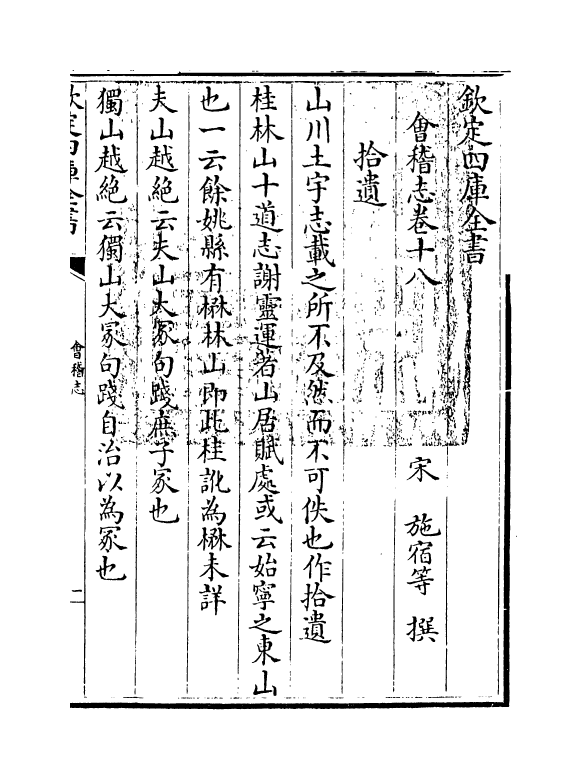 欽定四庫全書
會稽志卷十八
宋 施宿等 撰
拾遺
山川土宇志載之所不及然而不可佚也作拾遺
桂林山十道志謝靈運著山居賦處或云始寧之東山
也一云餘姚縣有楙林山即此桂訛為楙未詳
夫山越絶云夫山大冢句踐庶子冢也
獨山越絶云獨山大冢句踐自治以為冢也
欽定四庫全書
會稽志
二